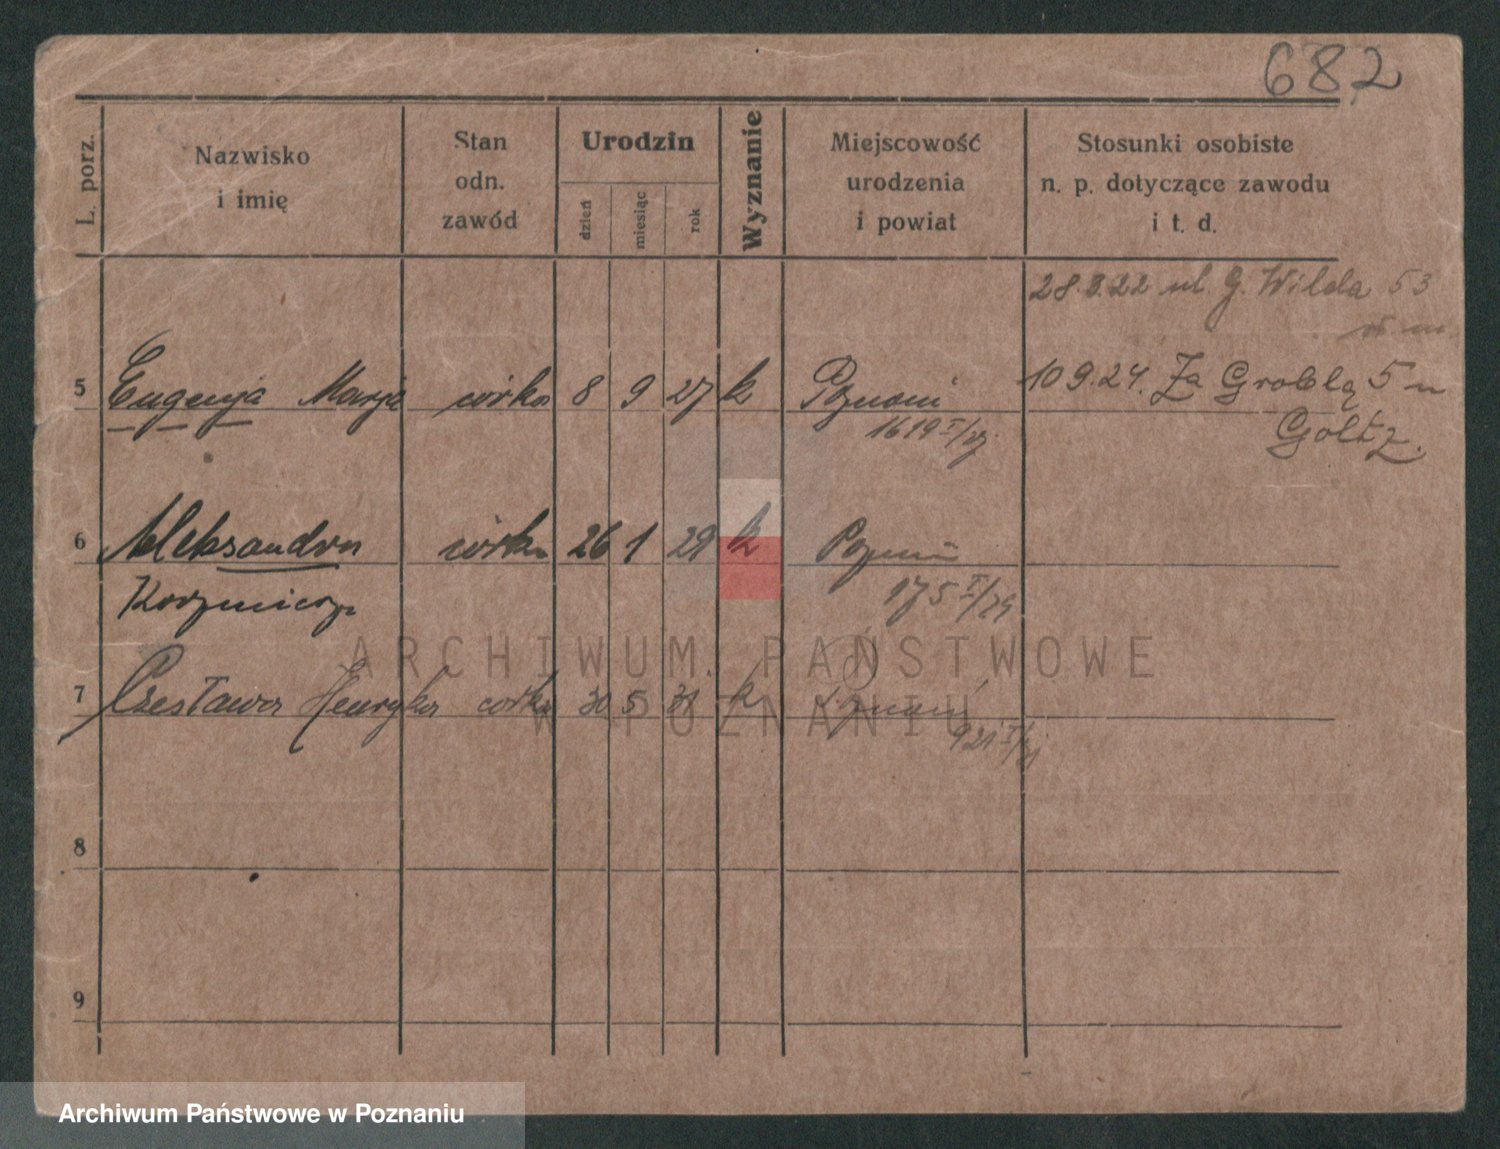 682
L. porz.
Nazwisko
i imię
Stan
odn.
zawód
Urodzin
dzień
miesiąc
rok
Wyznanie
Miejscowość
urodzenia
i powiat
Stosunki osobiste
n. p. dotyczące zawodu
i t. d.
28.8.22 ul. G. Wilda 53
5 Eugenja Marja córka 8 9 27 k Poznań
10 9.24. Za Groblą 5
1619 I/27
Goltz.
6 Aleksandra córka 26 1 29 k Poznań
175 I/29
ARCHIWUM PAŃSTWOWE
W POZNANIU
7 Czesława Henryka córka 30 5 31 k Poznań
921 I/31
8
9
Archiwum Państwowe w Poznaniu